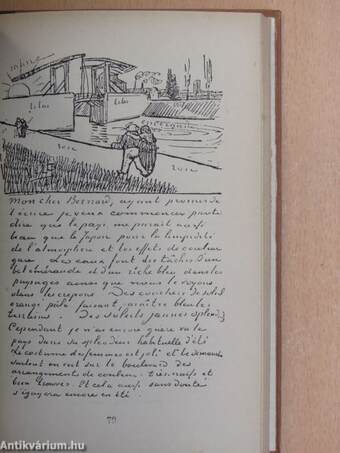 jaune
lilas
lilas
rose
rose
mon cher Bernard, ayant promis de
t'écrire je veux commencer par te
dire que le pays me parait aussi
beau que le Japon pour la limpidité
de l'atmosphere et les effets de couleur
gaie. Les eaux font des taches d'un
bel émeraude et d'un riche bleu dans les
paysages ainsi que nous le voyons
dans les crepons. Des couchers de soleil
orangé pâle faisant paraître bleus les
terrains. Des soleils jaunes splend.
Cependant je n'ai encore guère vu le
pays dans sa splendeur habituelle d'été
Le costume des femmes est joli et le dimanche
surtout on voit sur le boulevard des
arrangements de couleur très naifs et
bien trouvés. Et cela aussi sans doute
s'égayera encore en été.
79
Antikvárium.hu